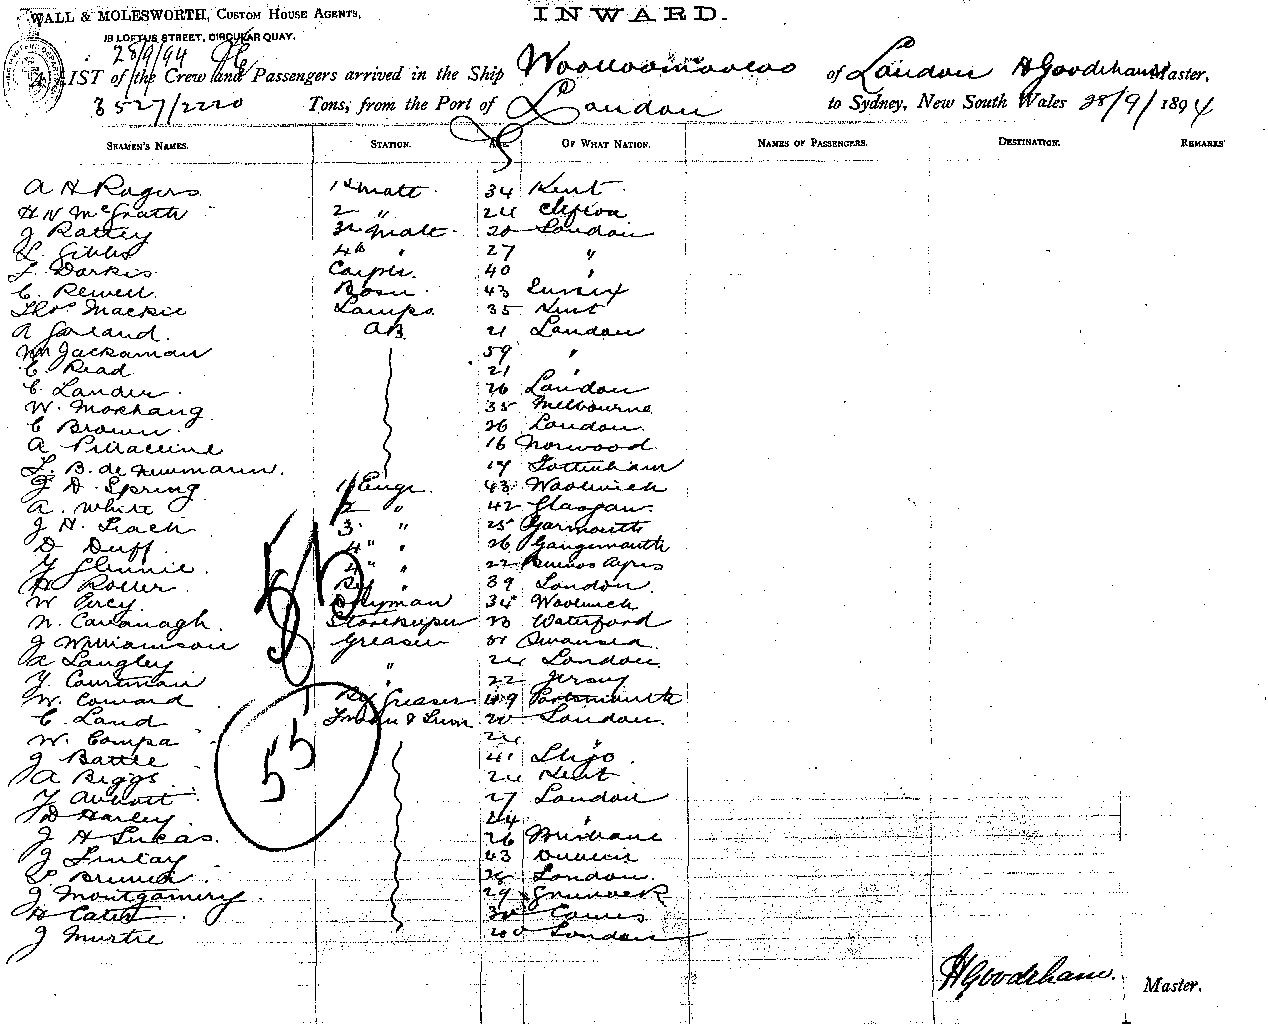 WALL & MOLESWORTH, CUSTOM HOUSE AGENTS,
INWARD.
19 LOFTUS STREET, CIRCULAR QUAY.
28/9/94
A LIST of the Crew and Passengers arrived in the Ship Woolloomooloo of London H Goodeham Master,
3527/2220 Tons, from the Port of London to Sydney, New South Wales 28/9/1894
SEAMEN'S NAMES. STATION. AGE. OF WHAT NATION. NAMES OF PASSENGERS. DESTINATION. REMARKS
A H Rogers 1st Mate 34 Kent
H N McGrath 2 " 24 Clifton
J Rattey 3rd Mate 20 London
Gibbs 4th " 27 "
Darkis Carptr. 40 "
C. Rewell Bosn. 43 Sussex
Thos Mackie Lamps 35 Kent
A Garland AB 21 London
Wm Jackaman 59 "
C. Read 21 "
C. Lander 26 London
W. Morhang 35 Melbourne
C Brown 26 London
A 16 Norwood
B. de Neumann. 17 Tottenham
J D. Spring 1 Engr. 43 Woolwich
A. White 2 " 42 Glasgow
J H. Leach 3 " 25 Yarmouth
D Duff 4" " 26 Grangemouth
Glennie. 4" " 22 Buenos Ayres
H Roller " 39 London
W Percy 34 Woolwich
N. Cavanagh Storekeeper 23 Waterford
J Williamson Greaser Swansea
A Langley " 24 London
Courtman 22 Jersey
W. Coward Greaser 49 Portsmouth
C. Land 20 London
W. Compa 24 "
J Battle 41 Sligo
A Biggs 24 Kent
27 London
D Harley 24 "
J H Lucas 26 Brisbane
J Finlay 43
Bruner London
J Montgomery 29 Greenock
H Cates 30 Cowes
J Murtie 20 London
55
H Goodeham. Master.